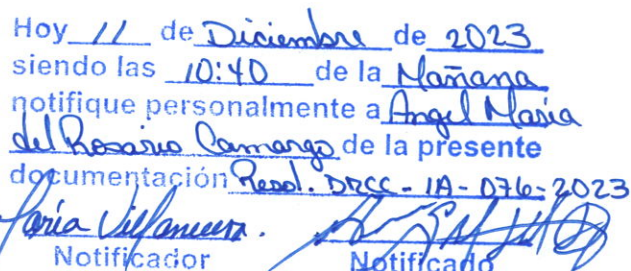 Hoy 11 de Diciembre de 2023
siendo las 10:40 de la Mañana
notifique personalmente a Angel Maria
del Rosario Camargo de la presente
documentación Resol. DRCC-IA-076-2023
Maria Villanueva.
Notificador Notificado